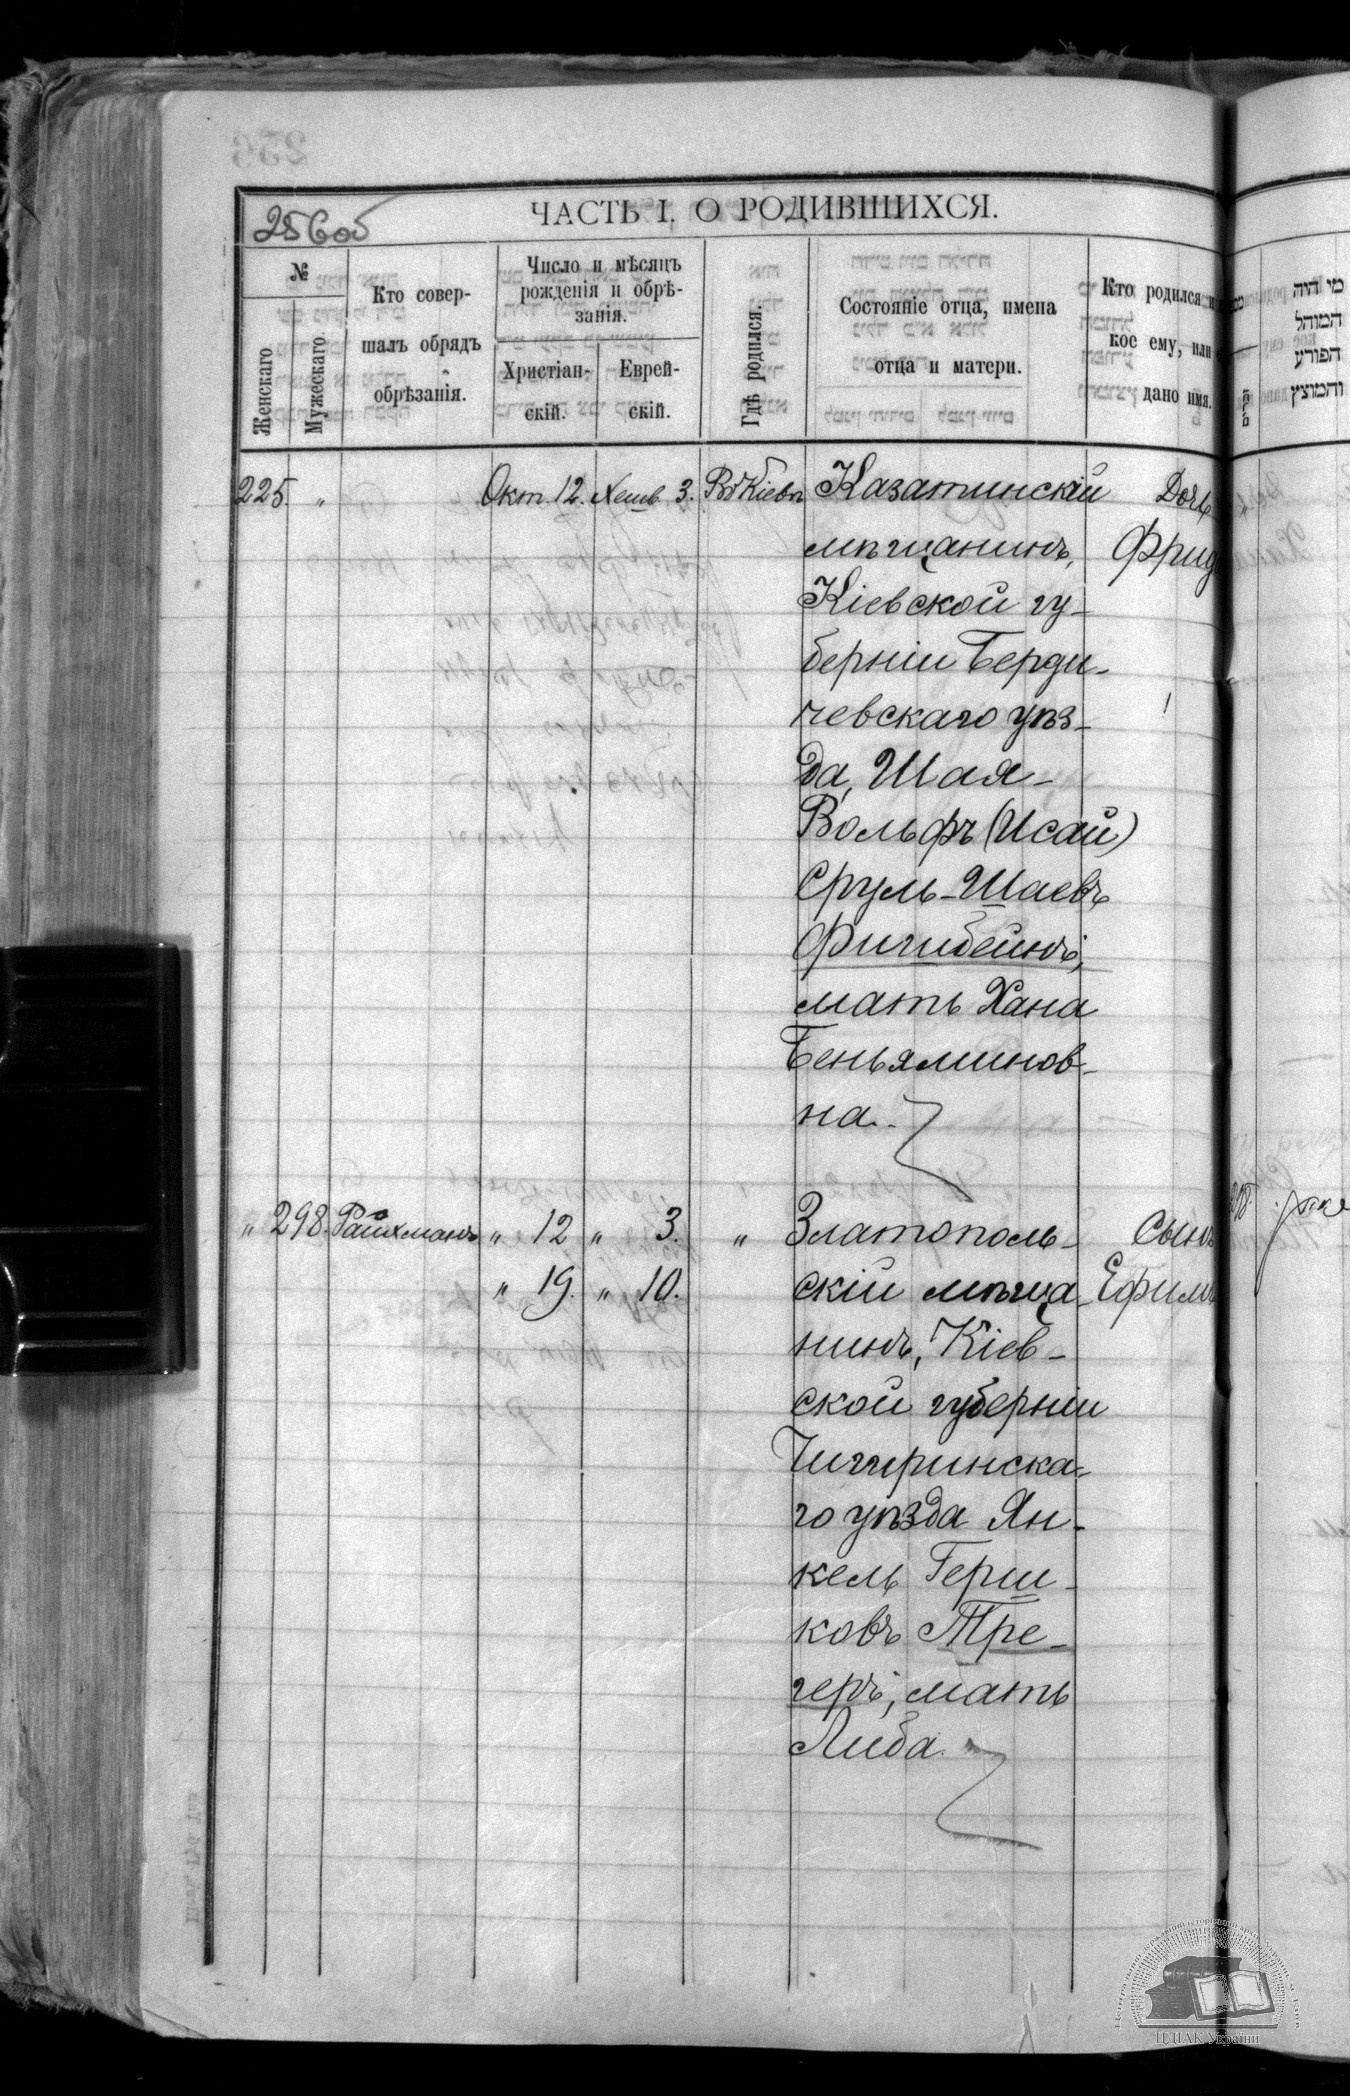 256 об
ЧАСТЬ I. О РОДИВШИХСЯ.
№
Женскаго
Мужескаго
Кто совер-
шалъ обрядъ
обрѣзанія.
Число и мѣсяцъ
рожденія и обрѣ-
занія.
Христіан-
скій.
Еврей-
скій.
Гдѣ родился.
Состояніе отца, имена
отца и матери.
Кто родился и
кое ему, или
дано имя.
מי היה
המוהל
הפורע
והמוצץ
225. „ Окт. 12. Хешв. 3. Въ Кіевѣ Казатинскій Дочь
мѣщанинъ, Фрид
Кіевской гу-
берніи Берди-
чевскаго уѣз-
да, Шая-
Вольфъ (Исай)
Сруль-Шаевъ
Фишбейнъ,
мать Хана
Беньяминов-
на.
„ 298. Райхманъ „ 12 „ 3. „ Златополь- Сынъ
„ 19. „ 10. скій мѣща- Ефимъ
нинъ, Кіев-
ской губерніи
Чигиринска-
го уѣзда Ян-
кель Герш-
ковъ Тре-
геръ, мать
Либа.
ЦДІАК України